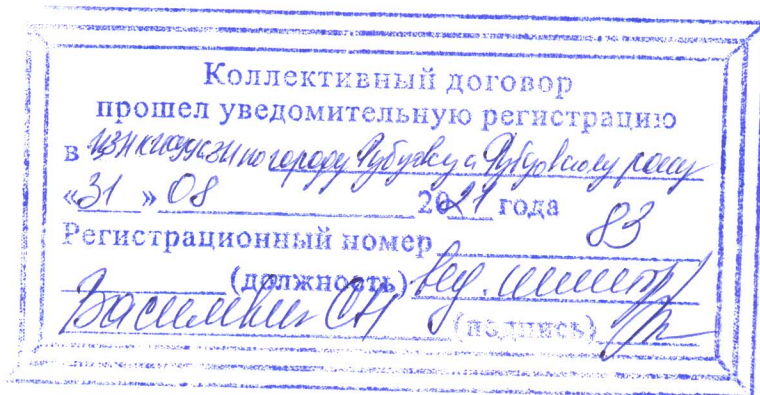 Коллективный договор
прошел уведомительную регистрацию
в ЦЗН по городу Рубцовску и Рубцовскому району
«31» 08 2021 года
Регистрационный номер 83
(должность) вед. инспектор
(подпись)